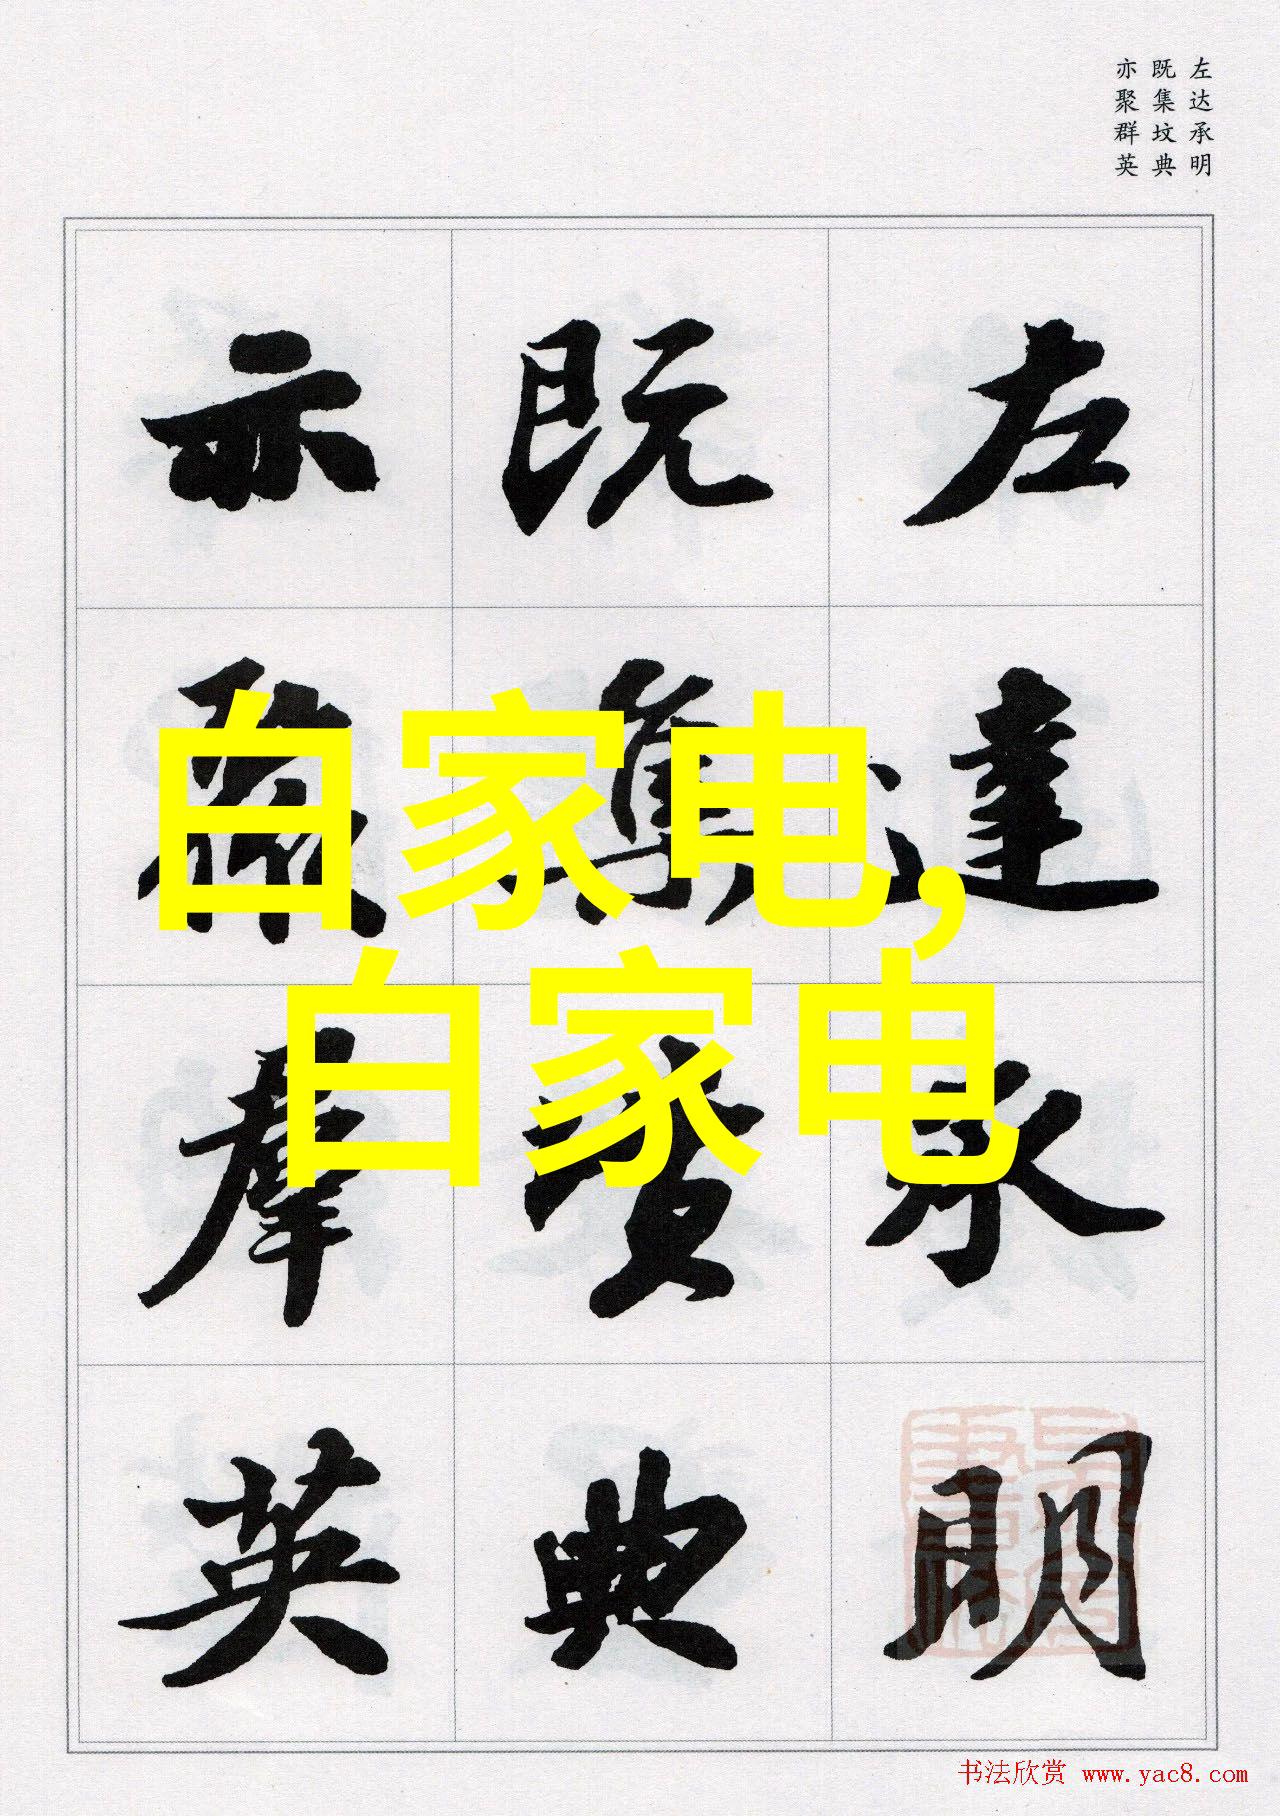 左达承明
既集坟典
亦聚群英
左達承明
既集墳典
亦聚羣英
白家电,
白家电
书法欣赏 www.yac8.com